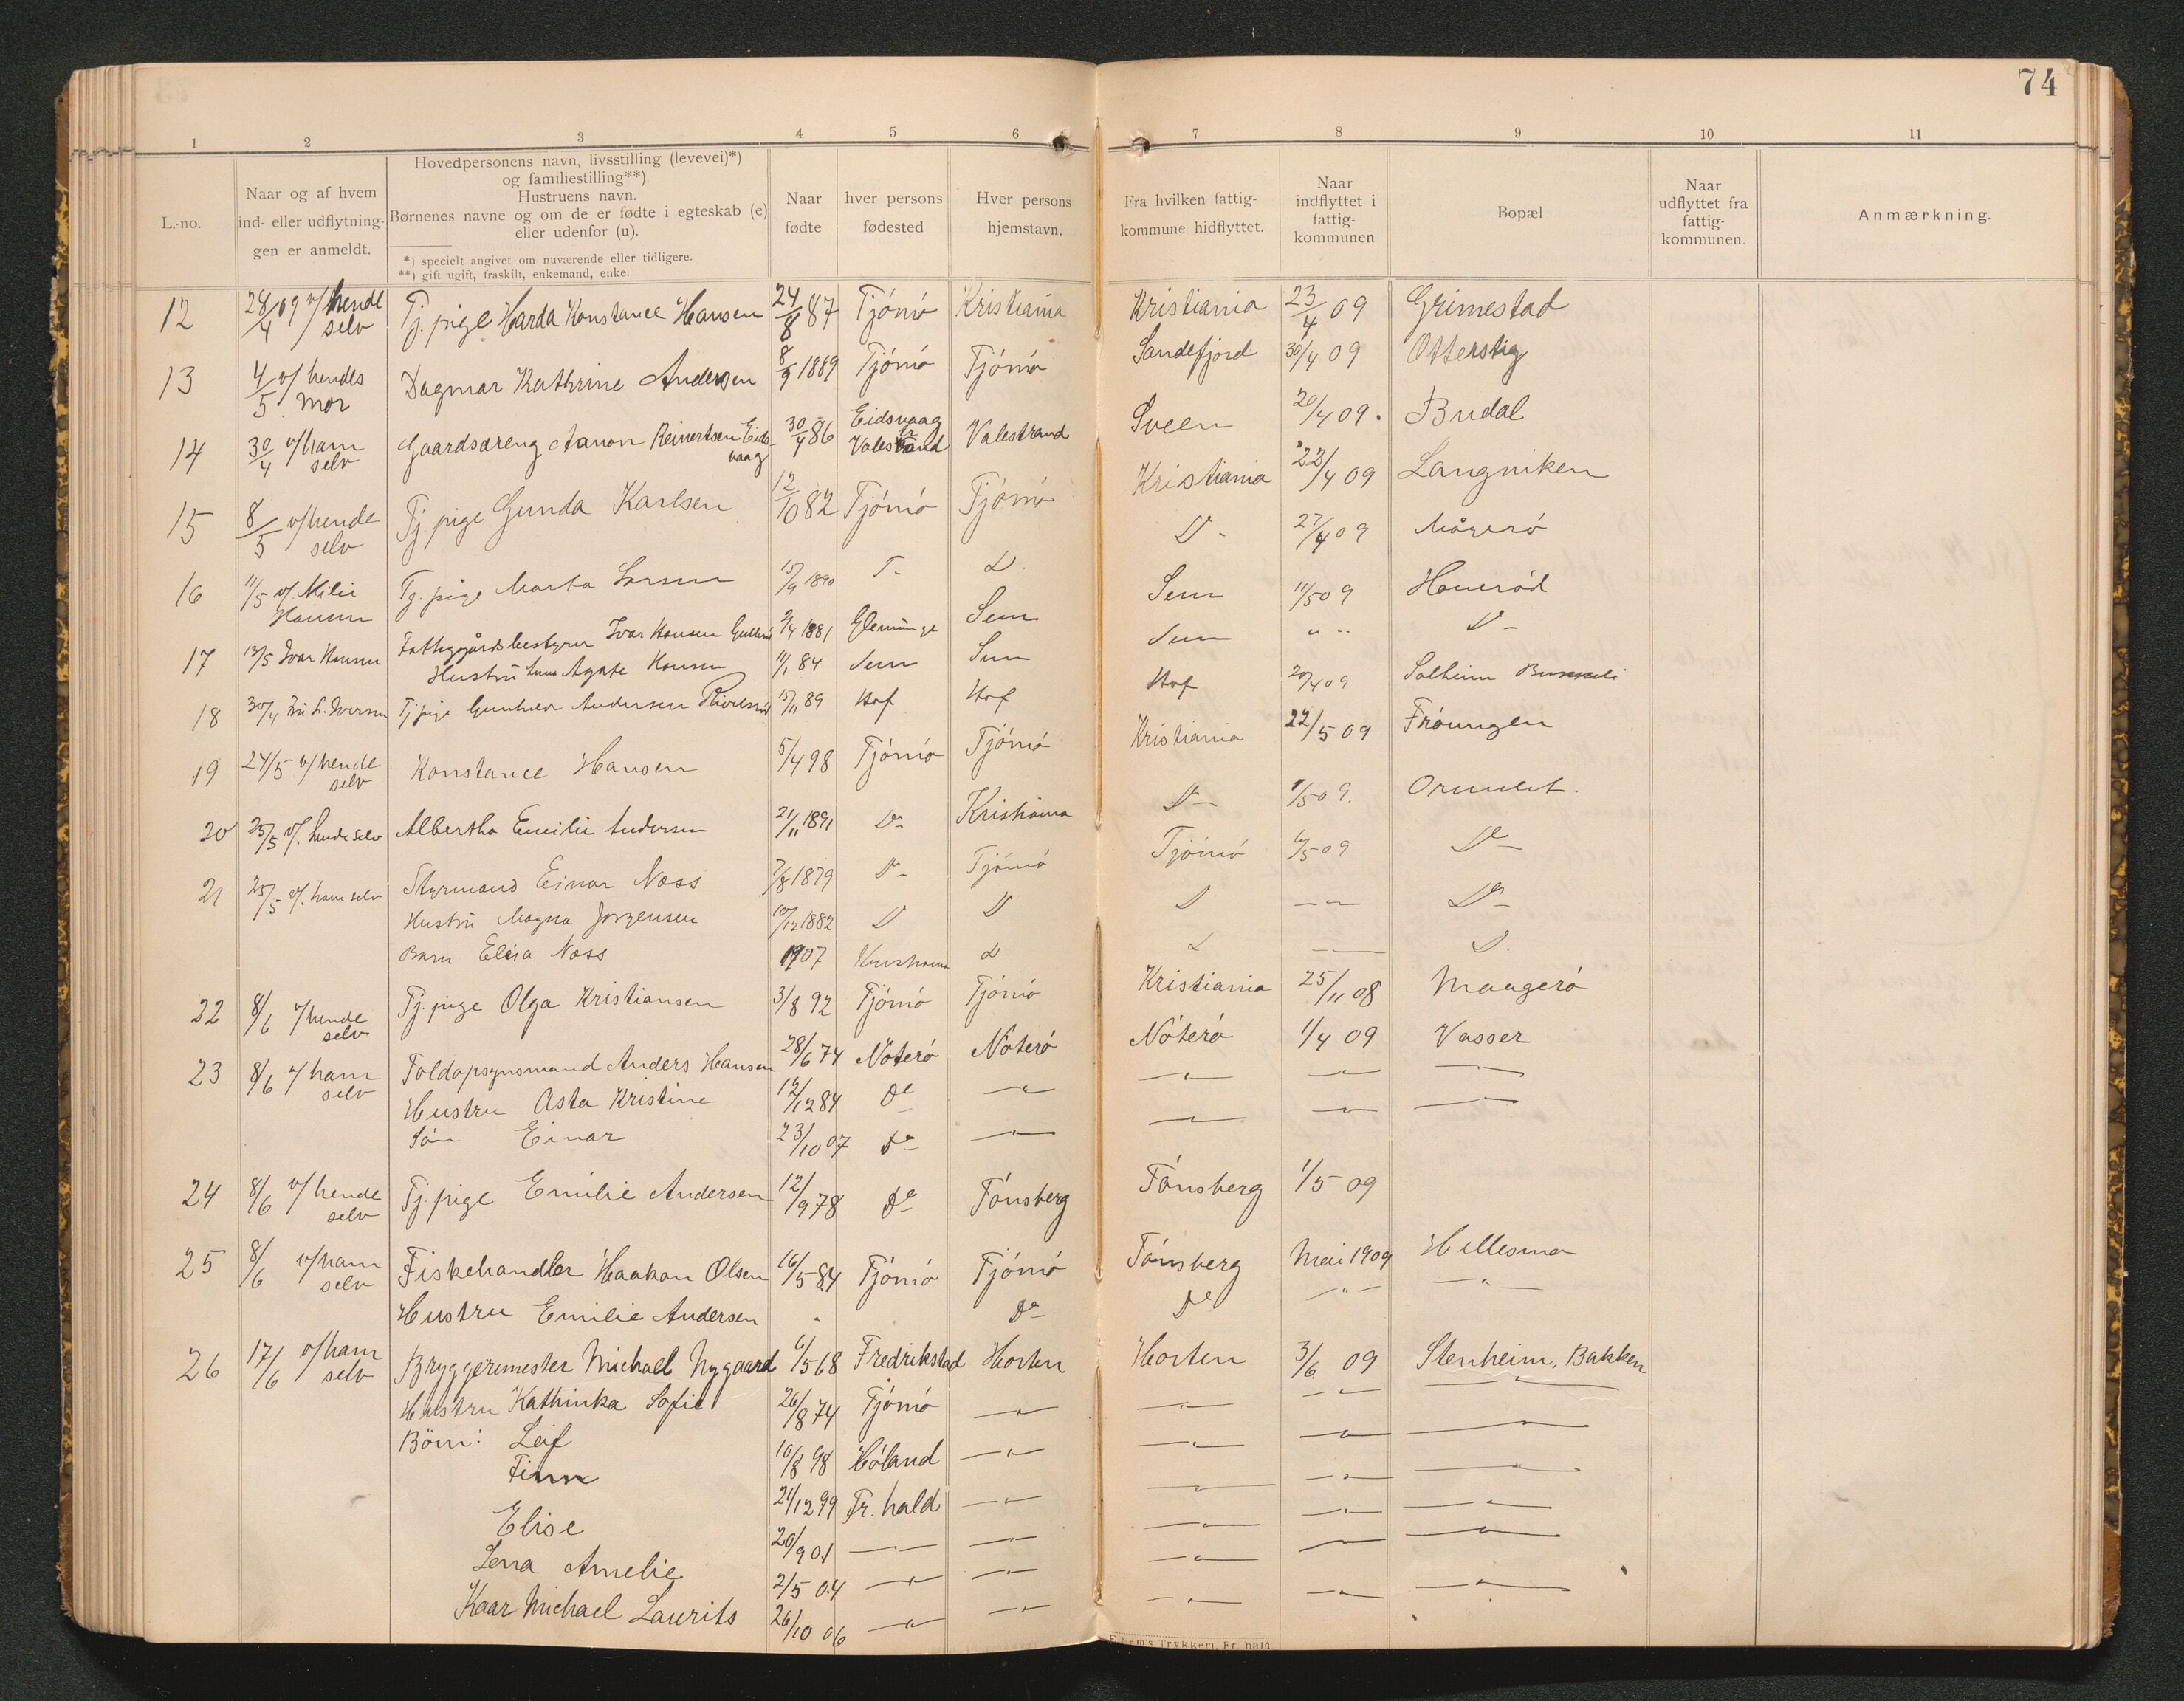 74
1 2 3 4 5 6 7 8 9 10 11
L.-no.
Naar og af hvem
ind- eller udflytning-
gen er anmeldt.
Hovedpersonens navn, livsstilling (levevei)*)
og familiestilling**)
Hustruens navn.
Børnenes navne og om de er fødte i egteskab (e)
eller udenfor (u).
*) specielt angivet om nuværende eller tidligere.
**) gift ugift, fraskilt, enkemand, enke.
Naar
fødte
hver persons
fødested
Hver persons
hjemstavn.
Fra hvilken fattig-
kommune hidflyttet.
Naar
indflyttet i
fattig-
kommunen
Bopæl
Naar
udflyttet fra
fattig-
kommunen.
Anmærkning.
12 28/4 09 v/ hende selv Tj. pige Harda Konstance Hansen 24/8 87 Tjömö Kristiania Kristiania 23/4 09 Grimestad
13 4/5 v/ hendes mor Dagmar Kathrine Andersen 8/9 1889 Tjömö Tjömö Sandefjord 30/4 09 Otterstig
14 30/4 v/ ham selv Gaardsdreng Aanon Reinertsen Eidsvaag 30/4 86 Eidsvaag Valestrand Valestrand Sveen 20/4 09. Budal
15 8/5 v/ hende selv Tj pige Gunda Karlsen 12/10 82 Tjömö Tjömö Kristiania 22/4 09 Langviken
16 11/5 v/ Milie Hansen Tj. pige Marta Larsen 15/9 1890 T- D. D- 27/4 09 Mågerö
17 12/5 Ivar Hansen Fattiggårdsbestyrer Ivar Hansen 2/4 1881 Glemminge Sem Sem 11/5 09 Hauerød
Hustrü Agate Hansen 11/1 84 Sem Sem Sem " " D-
18 30/4 L. Iversen Tj pige Gunhild Andersen 15/11 89 Hof Hof Hof 20/4 09 Solheim
19 24/5 v/ hende selv Konstance Hansen 5/4 98 Tjömö Tjömö Kristiania 22/5 09 Fröungen
20 25/5 v/. hende selv Albertha Emilie Andersen 21/11 1891 Do Kristiania D- 1/5 09. Ormelet.
21 25/5 v/. ham selv Styrmand Einar Næss 7/8 1879 D- Tjömö Tjömö 6/5 09 Do
Hustrü Magna Jørgensen 10/12 1882 D D D -"- Do
Barn Elisa Næss 1907 Kristiania D D -"- D.
22 8/6 v/ hende selv Tj. pige Olga Kristiansen 3/8 92 Tjömö Tjömö Kristiania 25/11 08 Maagerö
23 8/6 v/ ham selv Toldopsynsmand Anders Hansen 28/6 74 Nöterö Nöterö Nöterö 1/4 09 Vasser
Hustru Asta Kristine 12/12 84 Do -"- -"- -"- -"-
Sön Einar 23/10 07 Do -"- -"- -"- -"-
24 8/6 v/ hende selv Tj. pige Emilie Andersen 12/9 78 Do Tönsberg Tönsberg 1/5 09
25 8/6 v/ ham selv Fiskehandler Haakon Olsen 16/5 84 Tjömö Tjömö Tönsberg Mai 1909 Hellesmo
Hustru Emilie Andersen " Do Do -"- -"-
26 17/6 v/ ham selv Bryggerimester Michael Nygaard 6/5 68 Fredrikstad Horten Horten 3/6 09 Stenheim, Bakken
Hustru Kathinka Sofie 26/8 74 Tjömö -"- -"- -"- -"-
Börn: Leif 10/8 98 Höland -"- -"- -"- -"-
Finn 24/12 99 Fr. hald -"- -"- -"- -"-
Elise 20/9 01 -"- -"- -"- -"- -"-
Lena Amelie 2/5 04 -"- -"- -"- -"- -"-
Kaar Michael Laurits 26/10 06 -"- -"- -"- -"- -"-
Trykkeri, Fr. hald.